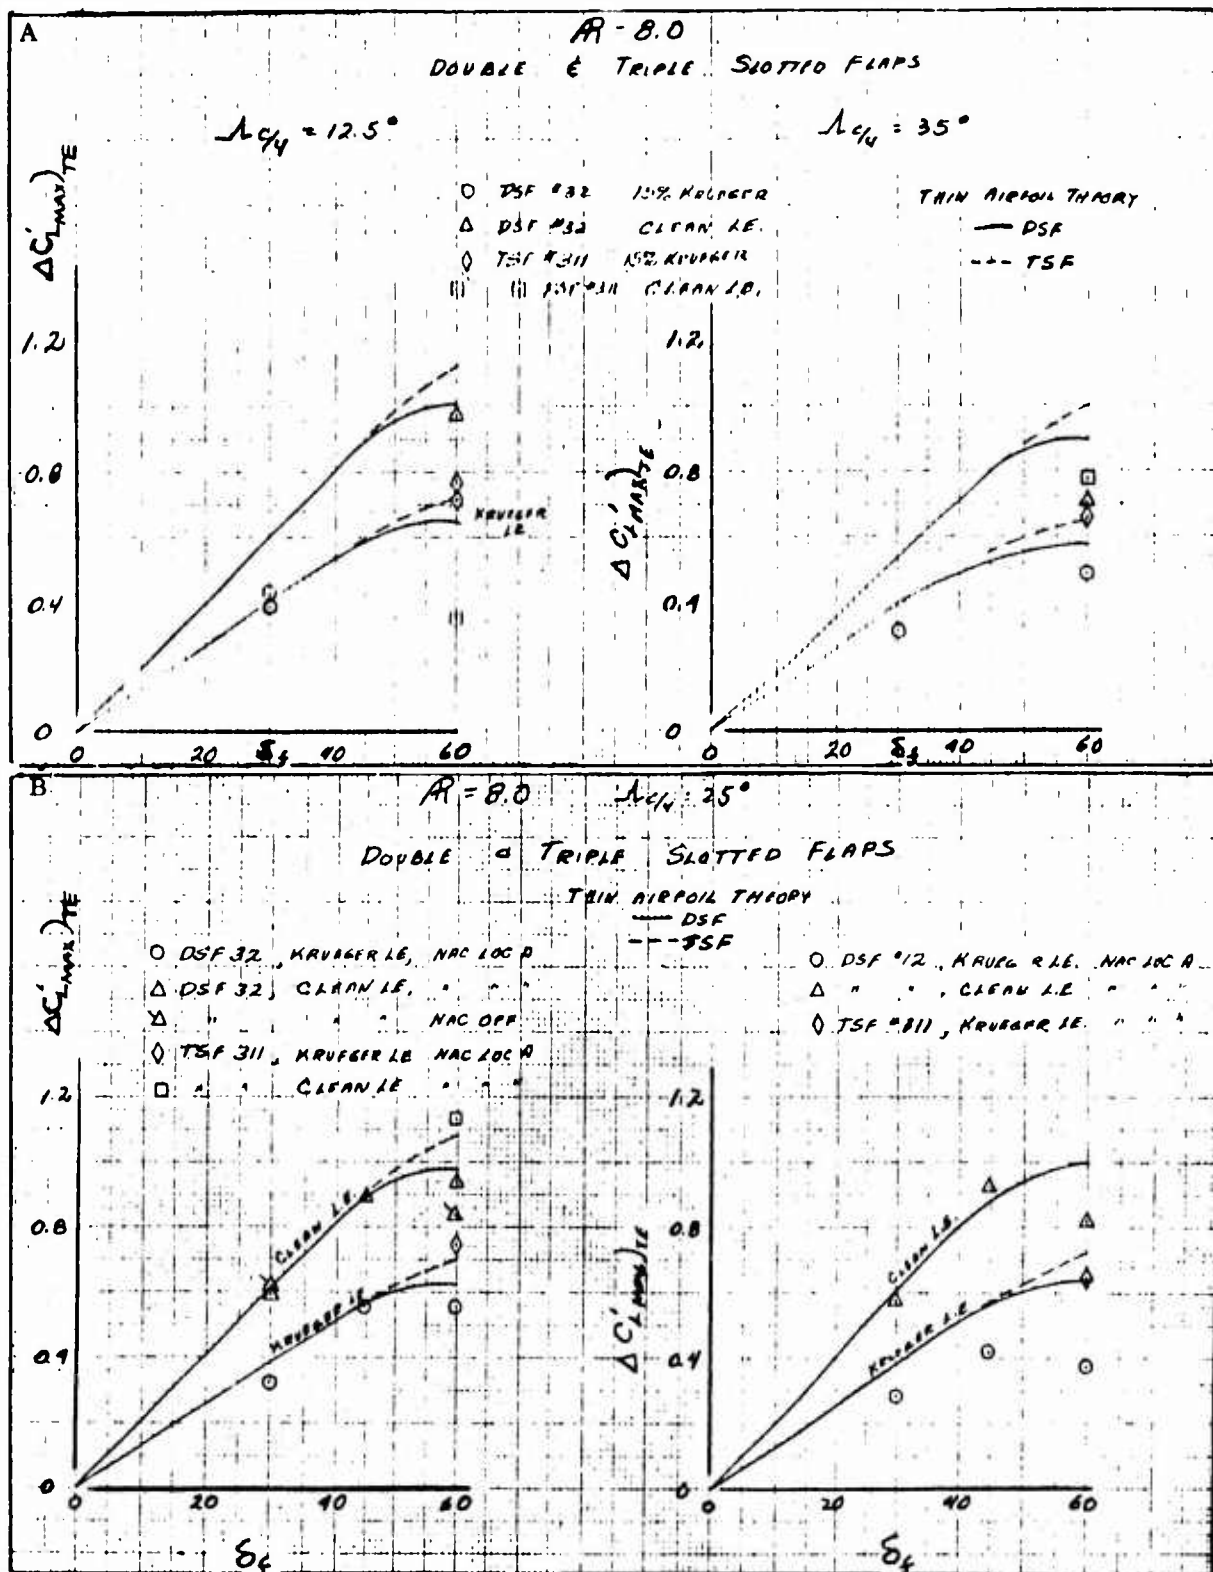 A
AR - 8.0
DOUBLE & TRIPLE SLOTTED FLAPS
Λc/4 = 12.5°
Λc/4 = 35°
DSF #32 15% KRUEGER
DSF #32 CLEAN L.E.
TSF #311 15% KRUEGER
CLEAN L.E.
THIN AIRFOIL THEORY
DSF
TSF
ΔC'LMAX)TE
1.2
0.8
0.4
0
KRUEGER
LE
0 20 δf 40 60
ΔC'LMAX)TE
1.2
0.8
0.4
0
0 20 δf 40 60
B
AR = 8.0 Λc/4 = 25°
DOUBLE & TRIPLE SLOTTED FLAPS
THIN AIRFOIL THEORY
DSF
TSF
DSF 32, KRUEGER LE, NAC LOC A
DSF 32, CLEAN LE, " " "
" " " " NAC OFF
TSF 311, KRUEGER LE NAC LOC A
" " CLEAN LE " " "
DSF #12, KRUEG R LE. NAC LOC A
" " , CLEAN L.E " " "
TSF #811, KRUEGER LE. " " "
ΔC'LMAX)TE
1.2
0.8
0.4
0
CLEAN L.E.
KRUEGER LE
0 20 40 60
δf
ΔC'LMAX)TE
1.2
0.8
0.4
0
CLEAN L.E.
KRUEGER L.E
0 20 40 60
δf